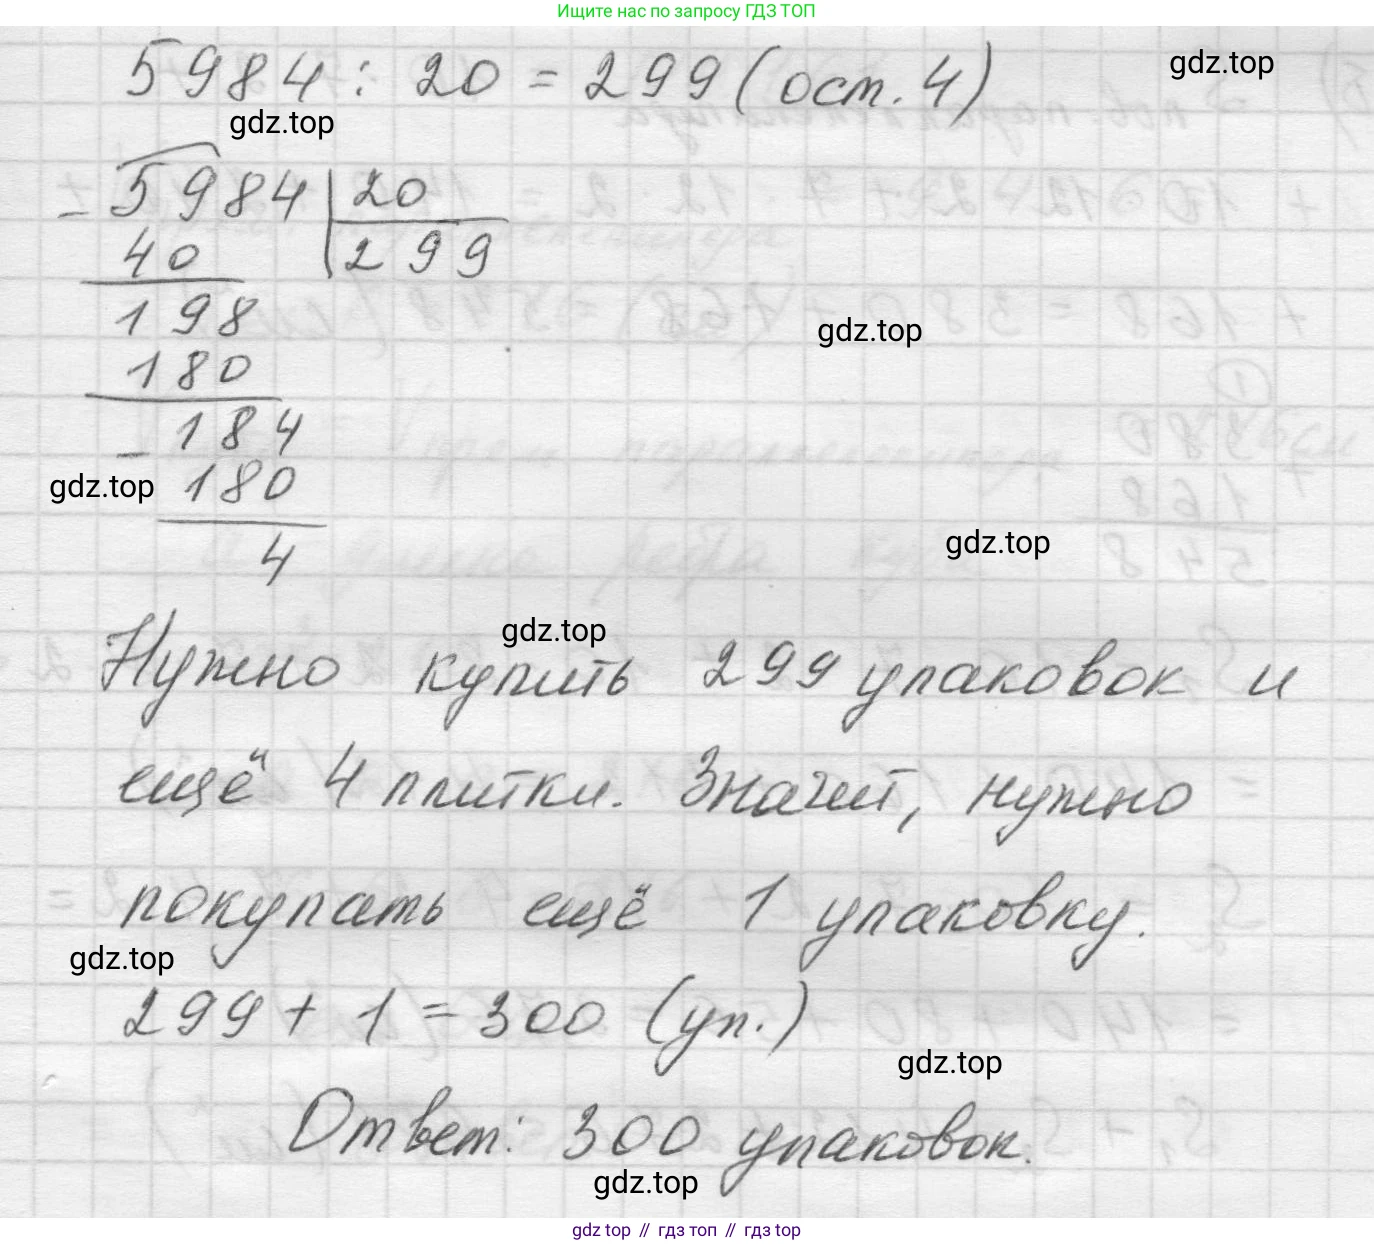 Ищите нас по запросу ГДЗ ТОП
5984 : 20 = 299 (ост. 4)
gdz.top
gdz.top
– 5984 | 20
40 | 299
198
gdz.top
180
– 184
gdz.top
180
gdz.top
4
gdz.top
Нужно купить 299 упаковок и
ещё 4 плитки. Значит, нужно
покупать ещё 1 упаковку.
gdz.top
299 + 1 = 300 (уп.)
gdz.top
Ответ: 300 упаковок.
gdz.top
gdz top // гдз топ // gdz top